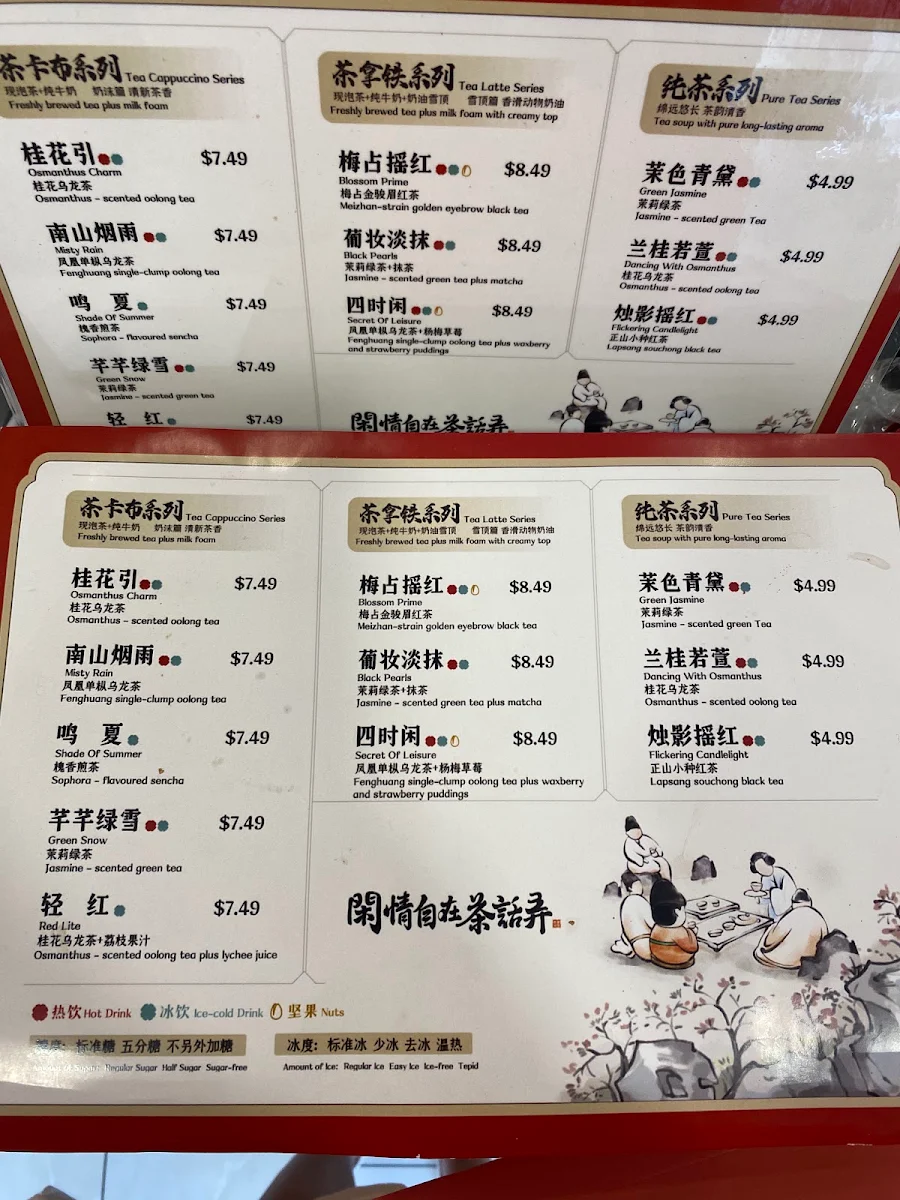 茶卡布系列 Tea Cappuccino Series
现泡茶+纯牛奶 奶沫篇 清新茶香
Freshly brewed tea plus milk foam
桂花引 $7.49
Osmanthus Charm
桂花乌龙茶
Osmanthus - scented oolong tea
南山烟雨 $7.49
Misty Rain
凤凰单枞乌龙茶
Fenghuang single-clump oolong tea
鸣 夏 $7.49
Shade Of Summer
槐香煎茶
Sophora - flavoured sencha
芊芊绿雪 $7.49
Green Snow
茉莉绿茶
Jasmine - scented green tea
轻 红 $7.49
茶拿铁系列 Tea Latte Series
现泡茶+纯牛奶+奶油雪顶 雪顶篇 香滑动物奶油
Freshly brewed tea plus milk foam with creamy top
梅占摇红 $8.49
Blossom Prime
梅占金骏眉红茶
Meizhan-strain golden eyebrow black tea
葡妆淡抹 $8.49
Black Pearls
茉莉绿茶+抹茶
Jasmine - scented green tea plus matcha
四时闲 $8.49
Secret Of Leisure
凤凰单枞乌龙茶+杨梅草莓
Fenghuang single-clump oolong tea plus waxberry
and strawberry puddings
纯茶系列 Pure Tea Series
绵远悠长 茶韵清香
Tea soup with pure long-lasting aroma
茉色青黛 $4.99
Green Jasmine
茉莉绿茶
Jasmine - scented green Tea
兰桂若萱 $4.99
Dancing With Osmanthus
桂花乌龙茶
Osmanthus - scented oolong tea
烛影摇红 $4.99
Flickering Candlelight
正山小种红茶
Lapsang souchong black tea
閑情自在茶話弄
茶卡布系列 Tea Cappuccino Series
现泡茶+纯牛奶 奶沫篇 清新茶香
Freshly brewed tea plus milk foam
桂花引 $7.49
Osmanthus Charm
桂花乌龙茶
Osmanthus - scented oolong tea
南山烟雨 $7.49
Misty Rain
凤凰单枞乌龙茶
Fenghuang single-clump oolong tea
鸣 夏 $7.49
Shade Of Summer
槐香煎茶
Sophora - flavoured sencha
芊芊绿雪 $7.49
Green Snow
茉莉绿茶
Jasmine - scented green tea
轻 红 $7.49
Red Lite
桂花乌龙茶+荔枝果汁
Osmanthus - scented oolong tea plus lychee juice
茶拿铁系列 Tea Latte Series
现泡茶+纯牛奶+奶油雪顶 雪顶篇 香滑动物奶油
Freshly brewed tea plus milk foam with creamy top
梅占摇红 $8.49
Blossom Prime
梅占金骏眉红茶
Meizhan-strain golden eyebrow black tea
葡妆淡抹 $8.49
Black Pearls
茉莉绿茶+抹茶
Jasmine - scented green tea plus matcha
四时闲 $8.49
Secret Of Leisure
凤凰单枞乌龙茶+杨梅草莓
Fenghuang single-clump oolong tea plus waxberry
and strawberry puddings
纯茶系列 Pure Tea Series
绵远悠长 茶韵清香
Tea soup with pure long-lasting aroma
茉色青黛 $4.99
Green Jasmine
茉莉绿茶
Jasmine - scented green Tea
兰桂若萱 $4.99
Dancing With Osmanthus
桂花乌龙茶
Osmanthus - scented oolong tea
烛影摇红 $4.99
Flickering Candlelight
正山小种红茶
Lapsang souchong black tea
閑情自在茶話弄
热饮 Hot Drink 冰饮 Ice-cold Drink 坚果 Nuts
糖度: 标准糖 五分糖 不另外加糖
Amount of Sugar: Regular Sugar Half Sugar Sugar-free
冰度: 标准冰 少冰 去冰 温热
Amount of Ice: Regular Ice Easy Ice Ice-free Tepid